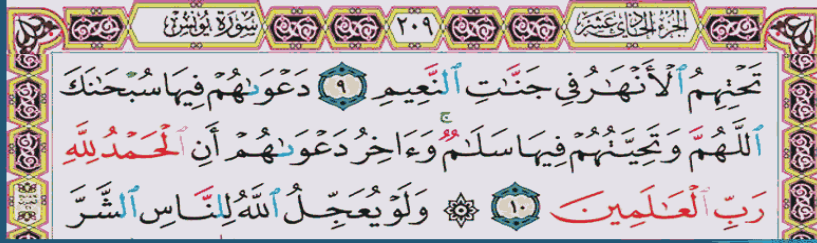 سُورَةُ يُونُسَ ٢٠٩ الجُزْءُ الحَادِي عَشَرَ
تَحْتِهِمُ ٱلْأَنْهَـٰرُ فِى جَنَّـٰتِ ٱلنَّعِيمِ ٩ دَعْوَىٰهُمْ فِيهَا سُبْحَـٰنَكَ
ٱللَّهُمَّ وَتَحِيَّتُهُمْ فِيهَا سَلَـٰمٌ ۚ وَءَاخِرُ دَعْوَىٰهُمْ أَنِ ٱلْحَمْدُ لِلَّهِ
رَبِّ ٱلْعَـٰلَمِينَ ١٠ ۞ وَلَوْ يُعَجِّلُ ٱللَّهُ لِلنَّاسِ ٱلشَّرَّ